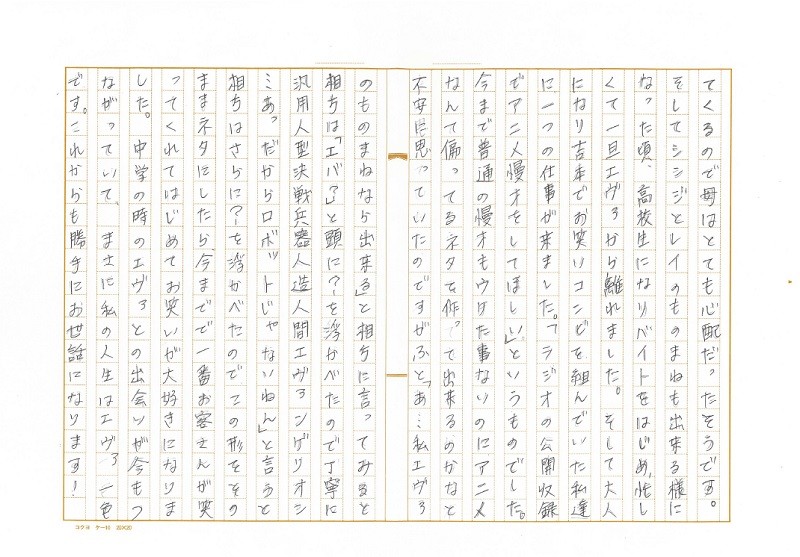 てくるので母はとても心配だったそうです。
そしてシンジとレイのものまねも出来る様に
なった頃、高校生になりバイトをはじめ、忙し
くて一旦エヴァから離れました。そして大人
になり吉本でお笑いコンビを組んでいた私達
に一つの仕事が来ました。「ラジオの公開収録
でアニメ漫才をしてほしい」というものでした。
今まで普通の漫才もウケた事ないのにアニメ
なんて偏ってるネタを作って出来るのかなと
不安に思っていたのですがふと「あ…私エヴァ
のものまねなら出来る」と相方に言ってみると
相方は「エバ？」と頭に？を浮かべたので丁寧に
汎用人型決戦兵器人造人間エヴァンゲリオン
…あっだからロボットじゃないねん」と言うと
相方はさらに？を浮かべたのでこの形をその
ままネタにしたら、今までで一番お客さんが笑
ってくれてはじめてお笑いが大好きになりま
した。中学の時のエヴァとの出会いが今もつ
ながっていて、まさに私の人生はエヴァ一色
です。これからも勝手にお世話になります！
コクヨ ケー10 20×20